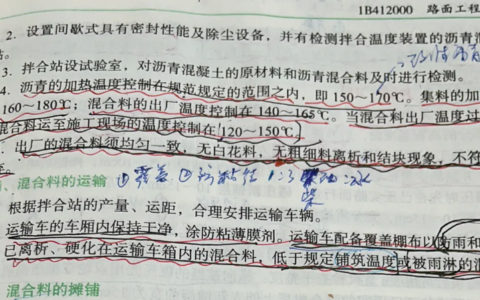 1B412000 路面工程
2. 设置间歇式具有密封性能及除尘设备，并有检测拌合温度装置的沥青
站。
3. 拌合站设试验室，对沥青混凝土的原材料和沥青混合料及时进行检测。
4. 沥青的加热温度控制在规范规定的范围之内，即 150～170℃。集料的加
160～180℃；混合料的出厂温度控制在 140～165℃。当混合料出厂温度过
混合料运至施工现场的温度控制在 120～150℃。
出厂的混合料须均匀一致，无白花料，无粗细料离析和结块现象，不符
混合料的运输 ①覆盖 ②防粘 1:3 柴油:水
柴
根据拌合站的产量、运距，合理安排运输车辆。
运输车的车厢内保持干净，涂防粘薄膜剂。运输车配备覆盖棚布以防雨和
已离析、硬化在运输车箱内的混合料，低于规定铺筑温度或被雨淋的混
混合料的摊铺